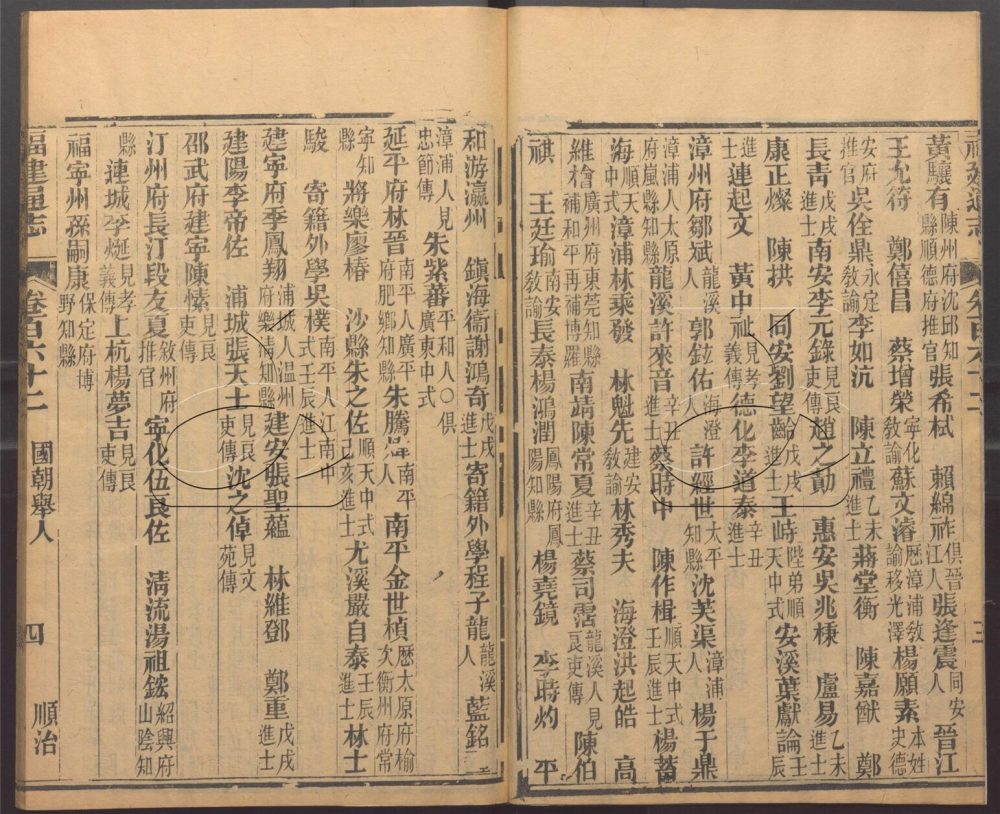 黃驤有陳州府沈邱知縣順德府推官張希栻 賴綿祚俱晉江人張逢震同安人晉江
王允符 鄭僖昌 蔡增榮寧化敎諭蘇文濬歷漳浦敎諭移光澤楊願素本姓史德
安府推官吳佺鼎永定敎諭李如沆 陳立禮乙未進士蔣堂衡 陳嘉猷 鄭
長青戊戌進士南安李元錄見良吏傳趙之勛 惠安吳兆棟 盧易乙未進士
康正燦 陳拱 同安劉望齡戊戌進士王畤陛弟順天中式安溪葉獻論壬辰
進士連起文 黃中祉見孝義傳德化李道泰辛丑進士
漳州府鄒斌龍溪人郭鉉佑海澄人許經世太平知縣沈芙渠漳浦人楊于鼎
漳浦人太原府嵐縣知縣龍溪許來音辛丑進士蔡時中 陳作楫順天中式壬辰進士楊蓄
海順天中式漳浦林乘發 林魁先建安敎諭林秀夫 海澄洪起皓 高
維檜廣州府東莞知縣補和平再補博羅南靖陳常夏辛丑進士蔡司霑龍溪人見良吏傳陳伯
祺 王廷瑜南安敎諭長泰楊鴻潤鳳陽府鳳陽知縣楊堯鏡 李時灼 平
和游瀛州 鎭海衞謝鴻奇戊戌進士寄籍外學程子龍龍溪人藍銘
漳浦人見忠節傳朱紫蕃平和人○俱廣東中式
延平府林晉南平人廣平府肥鄉知縣朱騰南平人南平金世楨歷太原府榆次衡州府常
寧知縣將樂廖椿 沙縣朱之佐順天中式己亥進士尤溪嚴自泰壬辰進士林士
駿 寄籍外學吳樸南平人江南中式壬辰進士
建寧府李鳳翔浦城人溫州府樂淸知縣建安張聖蘊 林維鄧 鄭重戊戌進士
建陽李帝佐 浦城張天士見良吏傳沈之倬見文苑傳
邵武府建寧陳愫見良吏傳
汀州府長汀段友夏敘州府推官寧化伍良佐 淸流湯祖鋐紹興府山陰知
縣連城李烻見孝義傳上杭楊夢吉見良吏傳
福寧州孫嗣康保定府博野知縣
福建通志 卷百六十二 國朝舉人 四 順治